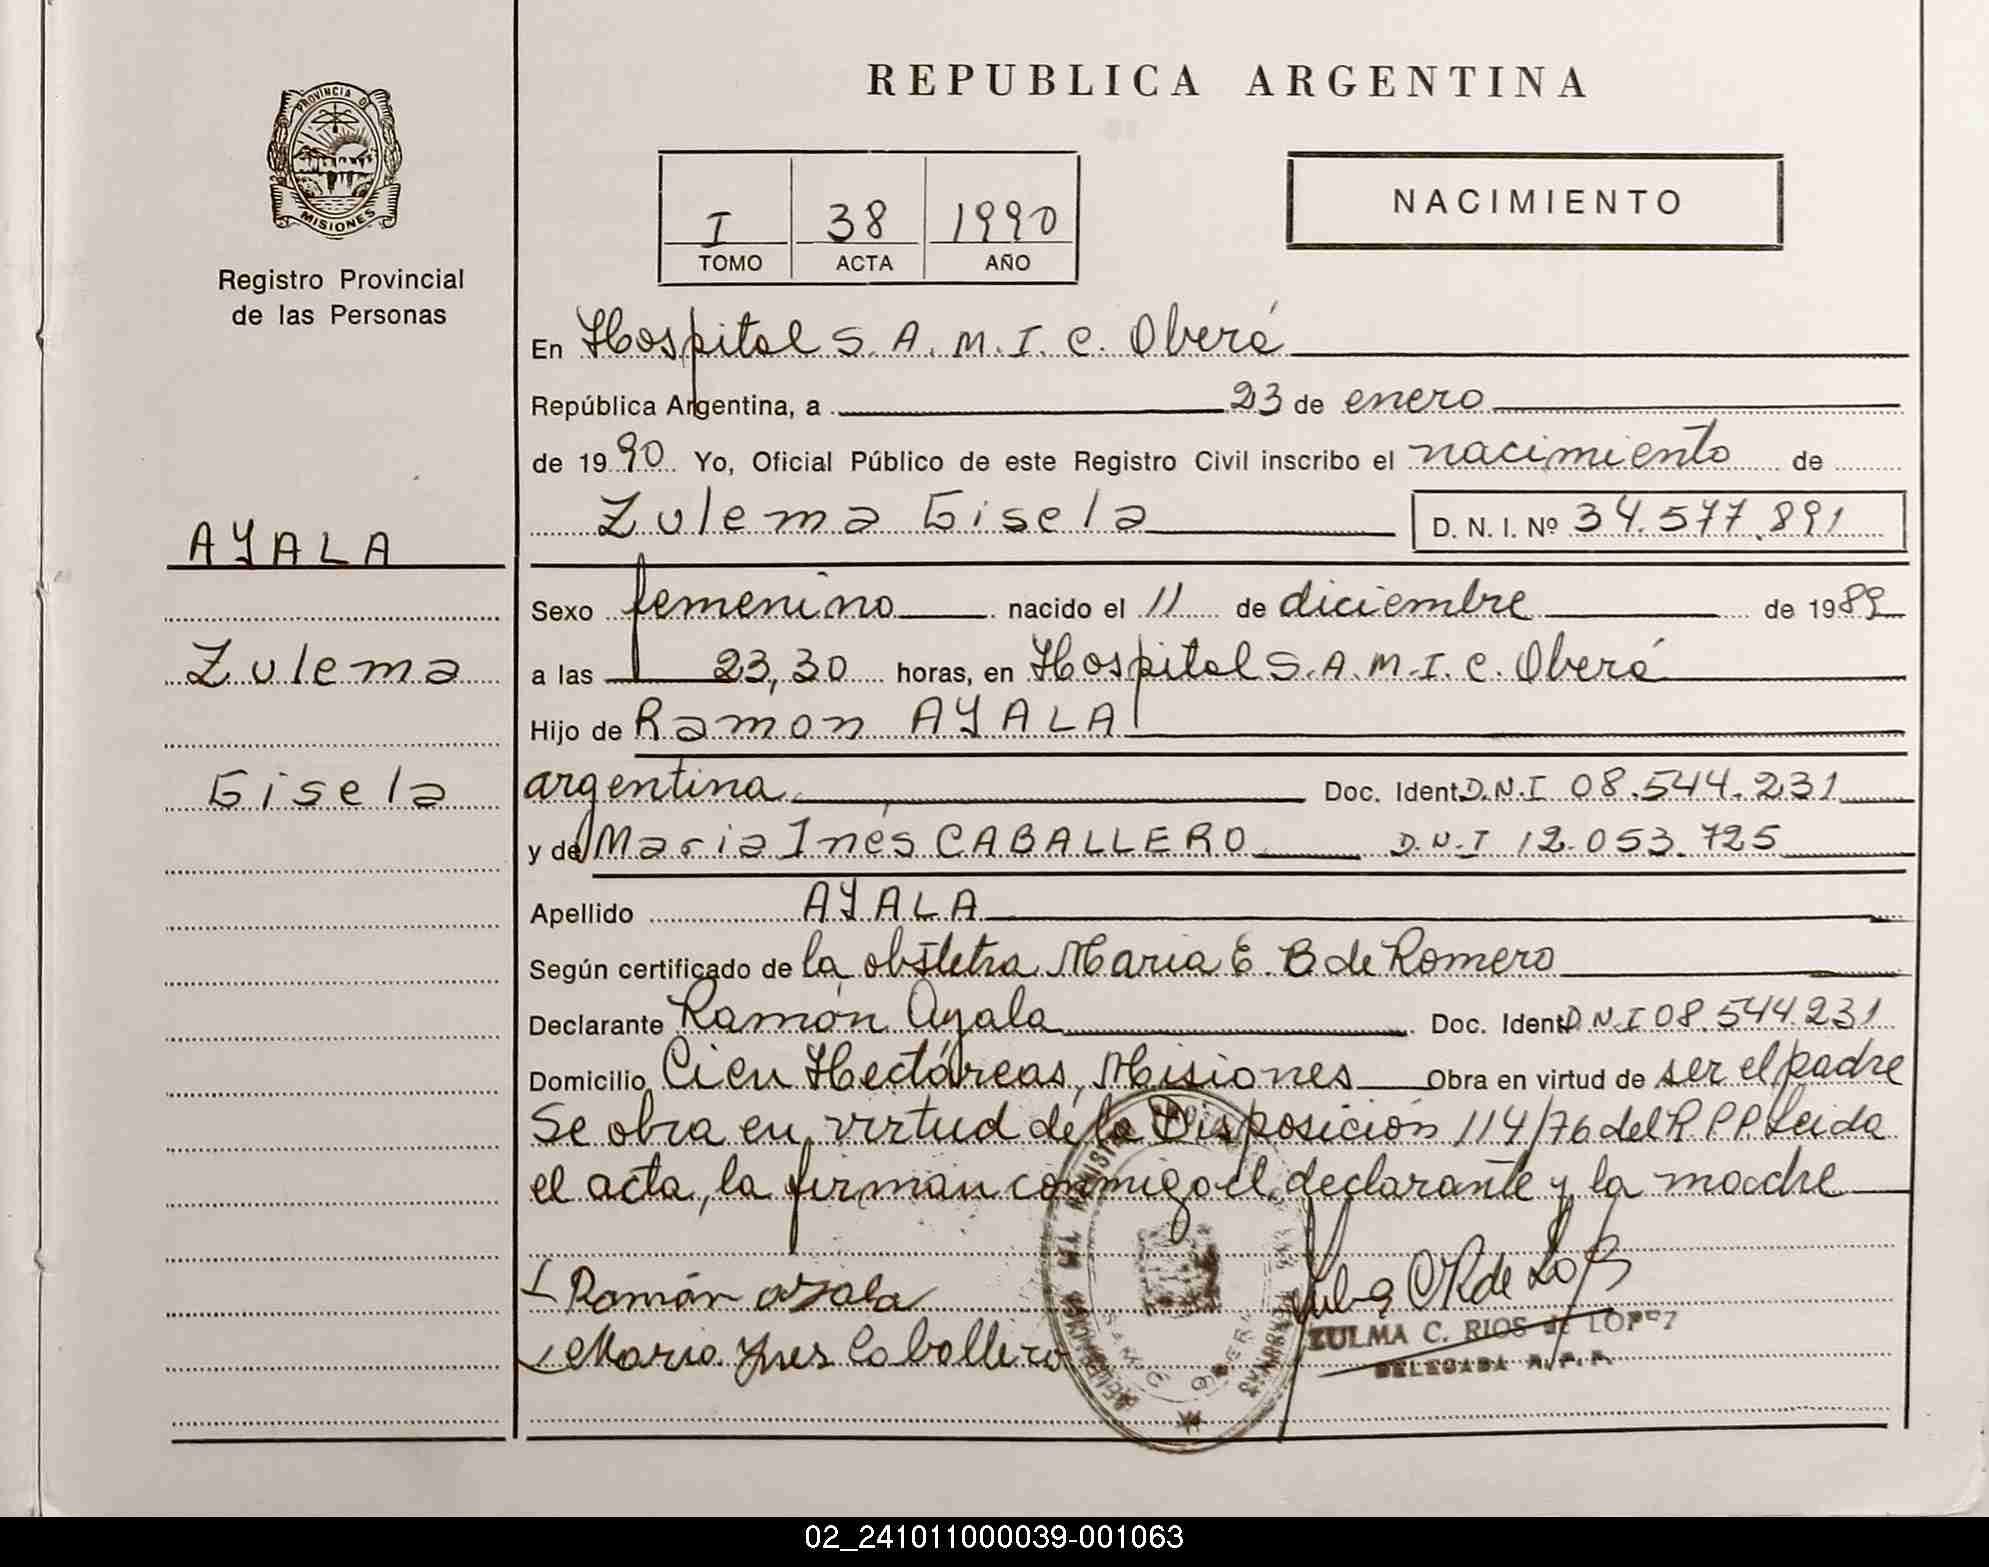 PROVINCIA DE
MISIONES
Registro Provincial
de las Personas
AYALA
Zulema
Gisela
REPUBLICA ARGENTINA
I 38 1990
TOMO ACTA AÑO
NACIMIENTO
En Hospital S.A.M.I.C. Oberá
República Argentina, a 23 de enero
de 1990 Yo, Oficial Público de este Registro Civil inscribo el nacimiento de
Zulema Gisela D. N. I. Nº 34.577.891
Sexo femenino nacido el 11 de diciembre de 1989
a las 23,30 horas, en Hospital S.A.M.I.C. Oberá
Hijo de Ramon AYALA
argentina Doc. Ident. D.N.I 08.544.231
y de Maria Inés CABALLERO D.N.I 12.053.725
Apellido AYALA
Según certificado de la obstetra Maria E. B de Romero
Declarante Ramón Ayala Doc. Ident. D.N.I 08.544.231
Domicilio Cien Hectáreas, Misiones Obra en virtud de ser el padre
Se obra en virtud de la Disposición 114/76 del R.P.P. Leida
el acta, la firman conmigo el declarante y la madre
Ramón ayala
Maria Ynes Caballero
ZULMA C. RIOS de LOPEZ
DELEGADA R.P.P.
02_241011000039-001063